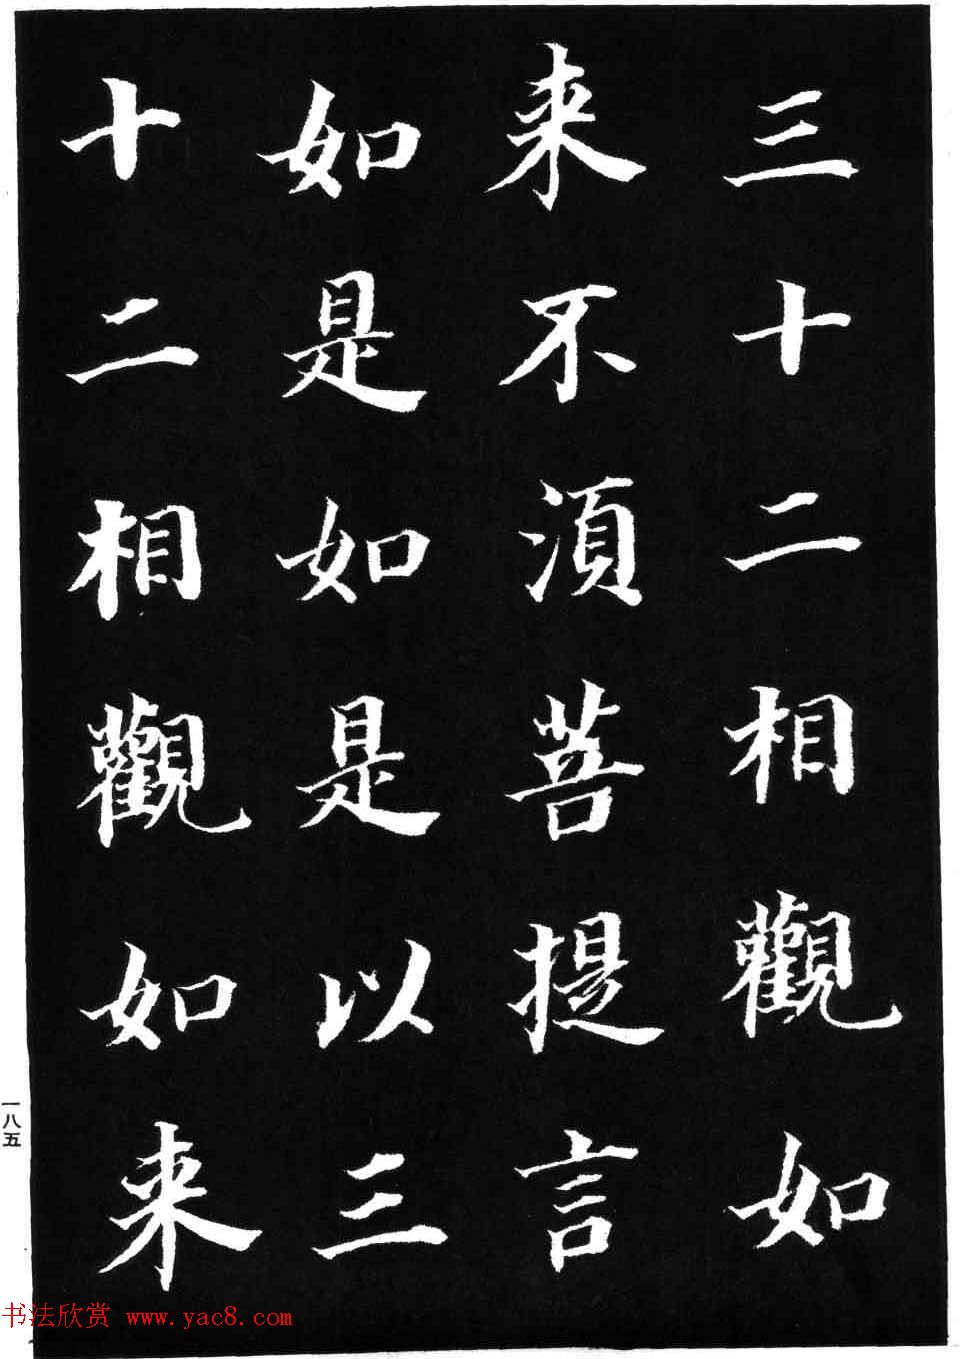 三十二相觀如
来不須菩提言
如是如是以三
十二相觀如来
一八五
书法欣赏 www.yac8.com